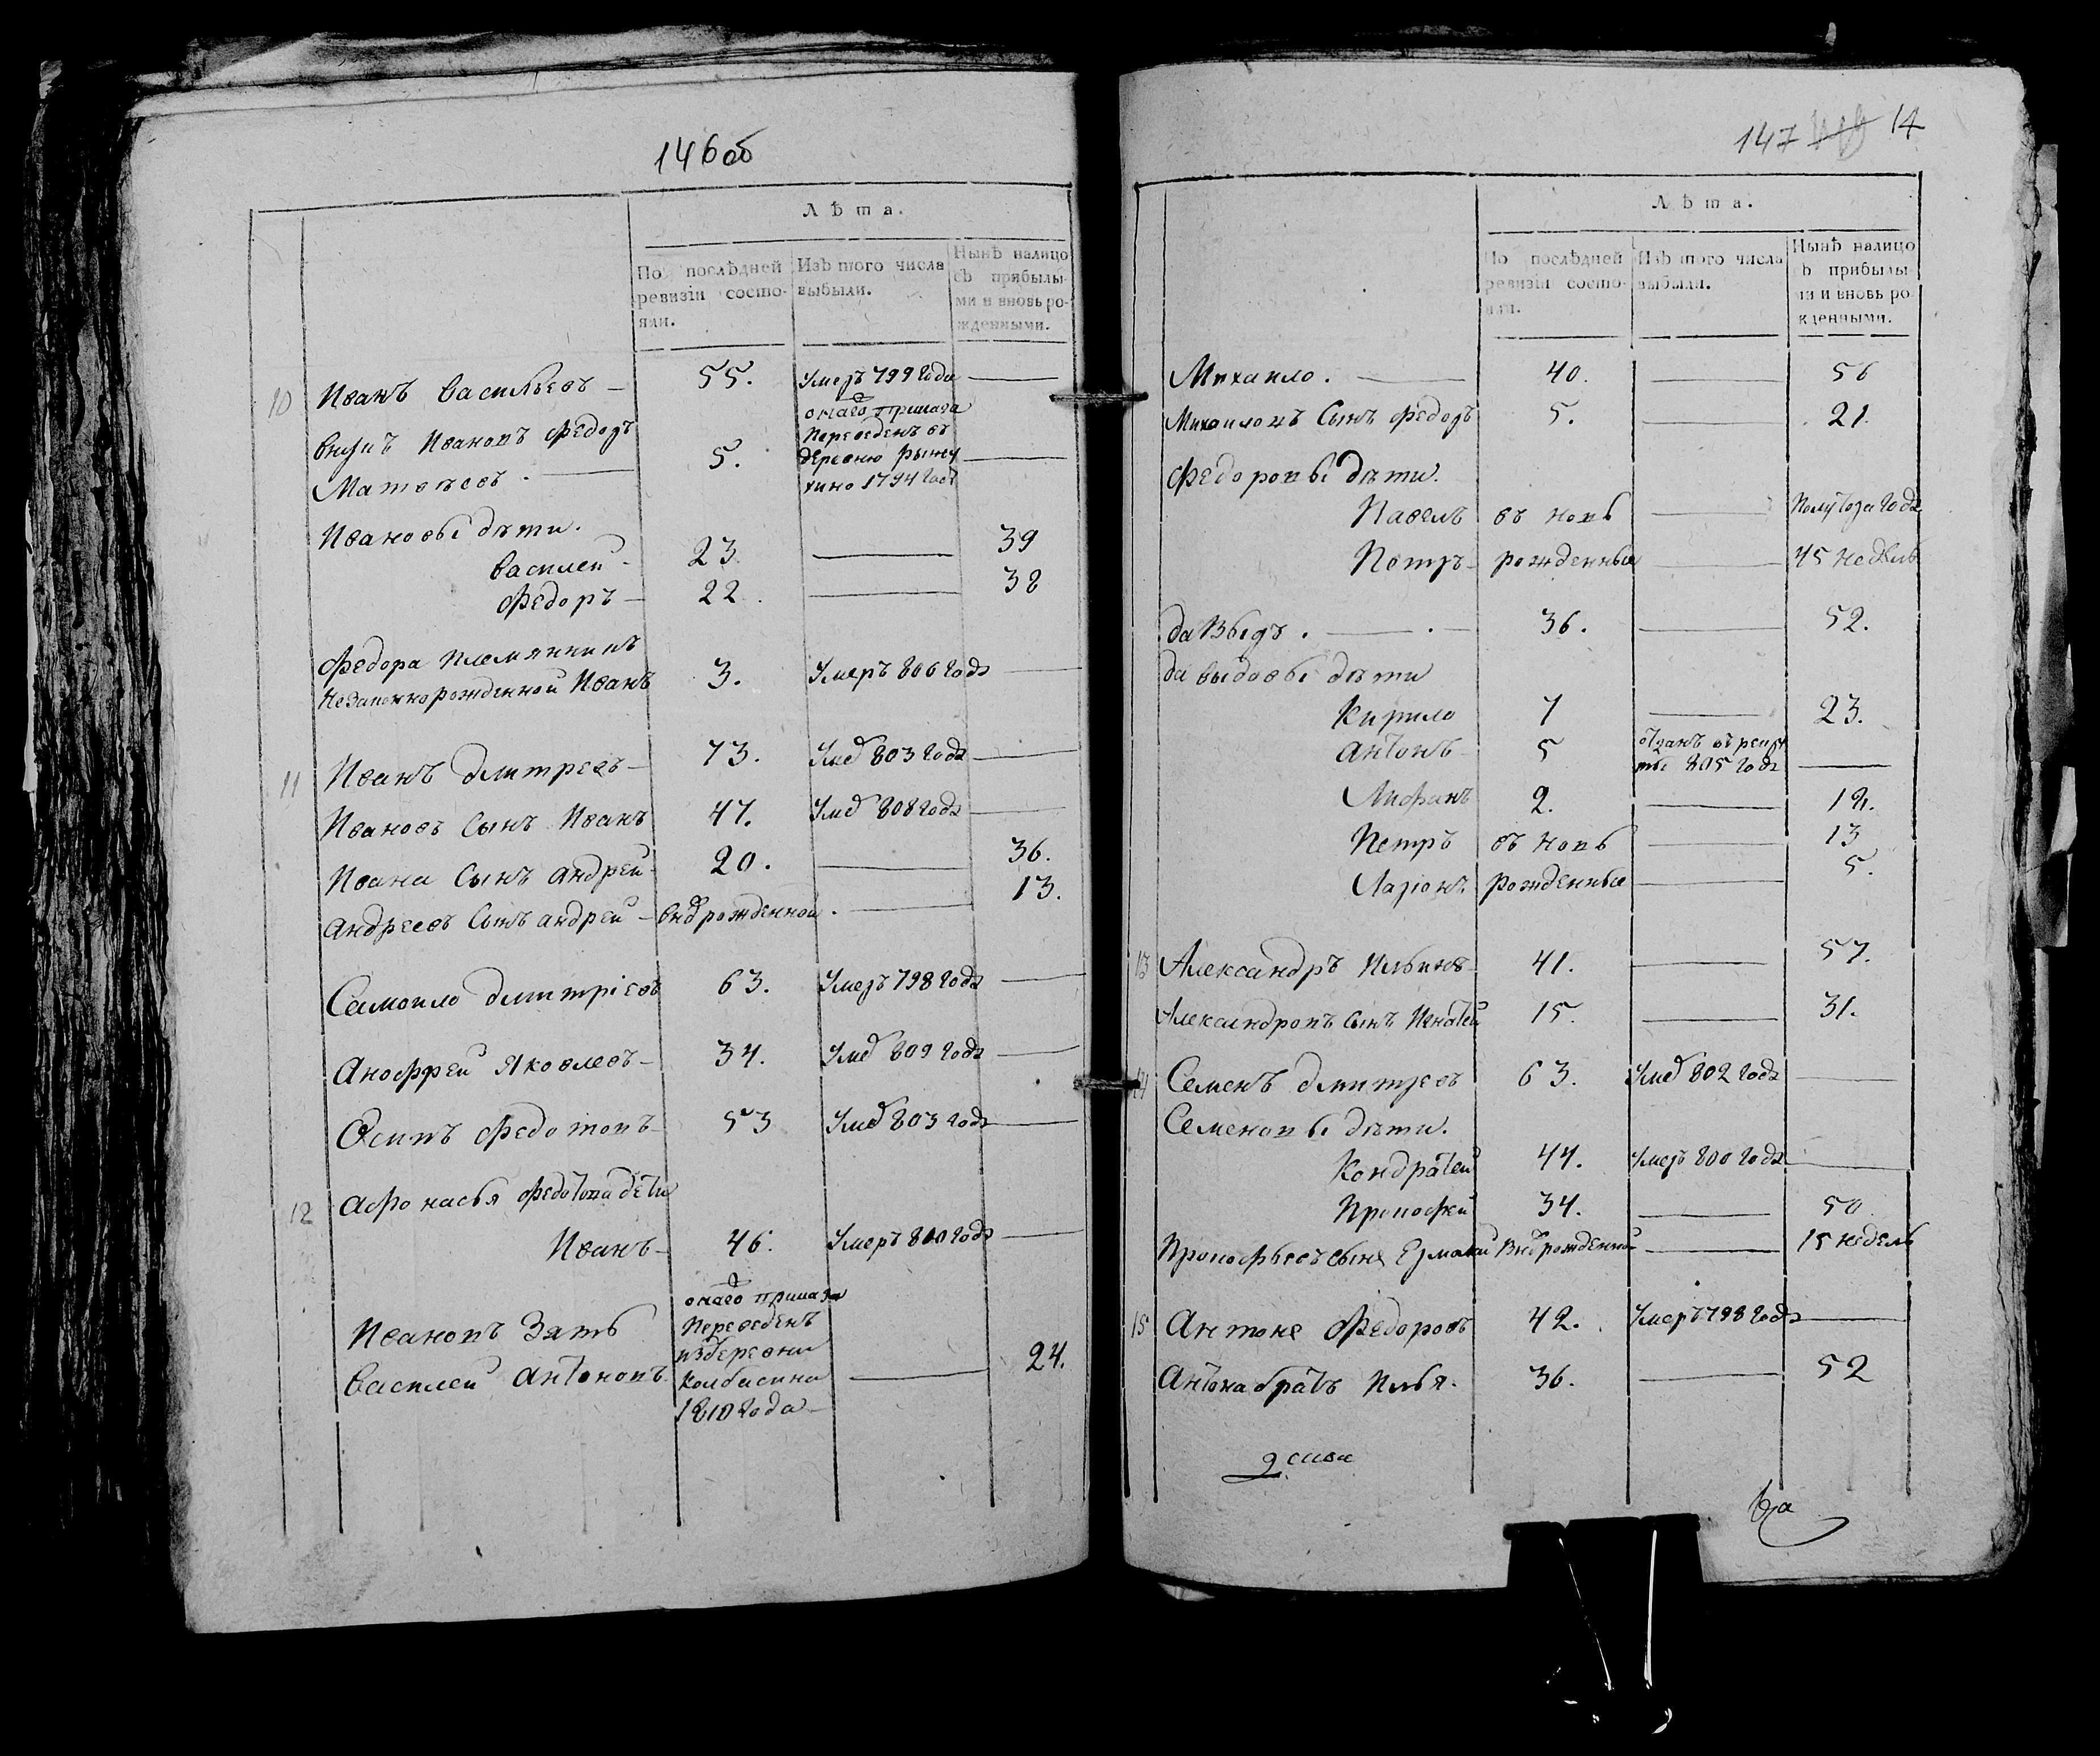 146 об
Лѣта.
По послѣдней ревизіи состояли.
Изъ того числа выбыли.
Нынѣ налицо съ прибылыми и вновь рожденными.
10 Иванъ Васильевъ — 55. Умеръ 799 года —
Внукъ Ивановъ Федоръ
Матвѣевъ. — 5. онаго приказа
Переведенъ въ
деревню
1794 года —
Ивановы дѣти.
Василей — 23. — 39
Федоръ — 22. — 38
Федора племянникъ
незаконнорожденной Иванъ 3. Умеръ 806 года —
11 Иванъ Дмитревъ — 73. Умѣ 803 года —
Ивановъ Сынъ Иванъ 47. Умѣ 808 года —
Ивана Сынъ Андрей 20. — 36.
Андреевъ Сынъ Андрей — внѣ рожденной. — 13.
Самоило Дмитріевъ 63. Умеръ 798 года —
Анофрей Яковлевъ — 34. Умѣ 809 года —
Осипъ Федотовъ — 53 Умѣ 803 года —
12 Афонасья Федотова дети
Иванъ — 46. Умеръ 810 года —
Ивановъ Зять
Василей Антоновъ. онаго приказа
Переведенъ
из деревни
Колбасина
1810 года — — 24.
147 14
Лѣта.
По послѣдней ревизіи состояли.
Изъ того числа выбыли.
Нынѣ налицо съ прибылыми и вновь рожденными.
Михаило. — 40. — 56
Михаиловъ Сынъ Федоръ 5. — 21.
Федоровы дѣти.
Павелъ въ новь — Полутора года
Петръ — рожденныя — 45 недѣль
Давыдъ. — 36. — 52.
Давыдовы дѣти
Кирило 7 — 23.
Антонъ 5 отданъ въ рекру
ты 805 года —
2. — 18.
Петръ въ новь — 13
Ларіонъ рожденныя — 5.
13 Александръ Ильинъ — 41. — 57.
Александровъ Сынъ Игнатей 15. — 31.
14 Семенъ Дмитревъ 63. Умѣ 802 года —
Семеновы дѣти.
Кондратей 44. Умеръ 800 года —
Прокофей 34. — 50
Прокофьевъ сынъ Ермолай внѣ рожденной — 15 недель
15 Антонъ Федоровъ 42. Умеръ 798 года —
Антона братъ Илья. 36. — 52